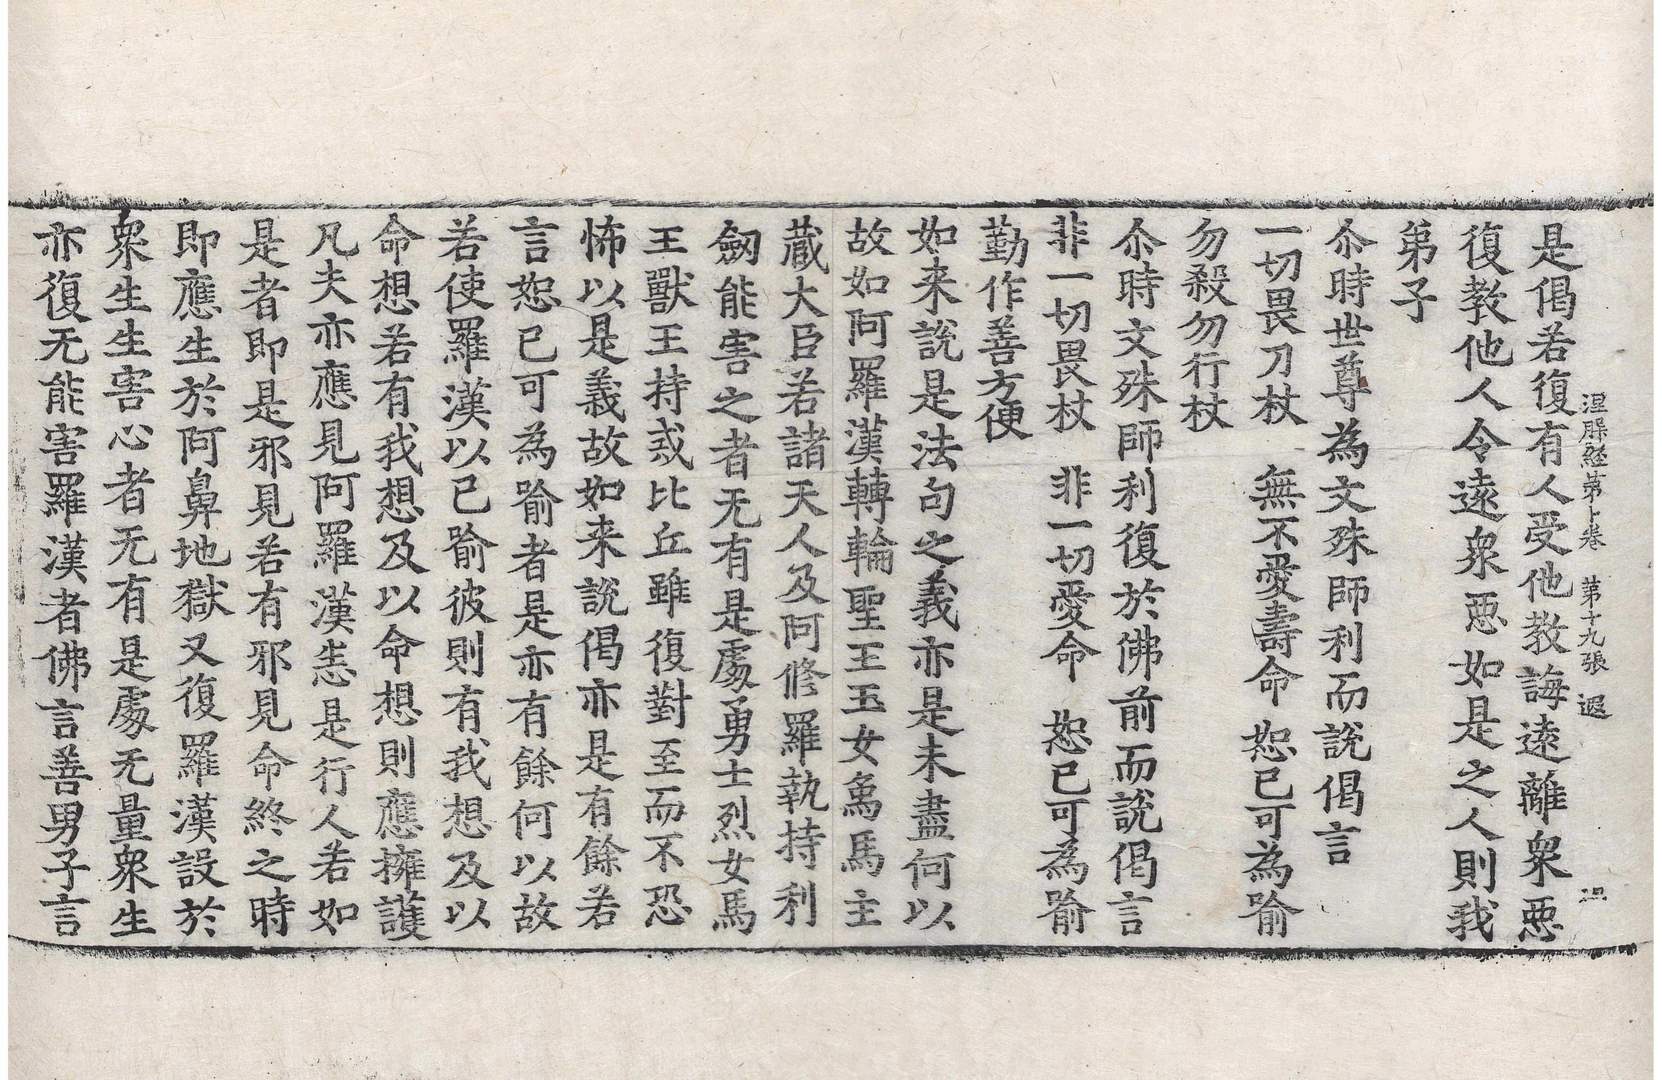 涅槃經第十卷 第十九張 遐
是偈若復有人受他教誨遠離衆惡
復教他人令遠衆惡如是之人則我
弟子
尒時世尊為文殊師利而說偈言
一切畏刀杖 無不愛壽命 恕己可為喻
勿殺勿行杖
尒時文殊師利復於佛前而說偈言
非一切畏杖 非一切愛命 恕己可為喻
勤作善方便
如来說是法句之義亦是未盡何以
故如阿羅漢轉輪聖王玉女象馬主
藏大臣若諸天人及阿修羅執持利
劒能害之者无有是處勇士烈女馬
王獸王持戒比丘雖復對至而不恐
怖以是義故如来說偈亦是有餘若
言恕己可為喻者是亦有餘何以故
若使羅漢以己喻彼則有我想及以
命想若有我想及以命想則應擁護
凡夫亦應見阿羅漢悉是行人若如
是者即是邪見若有邪見命終之時
即應生於阿鼻地獄又復羅漢設於
衆生生害心者无有是處无量衆生
亦復无能害羅漢者佛言善男子言